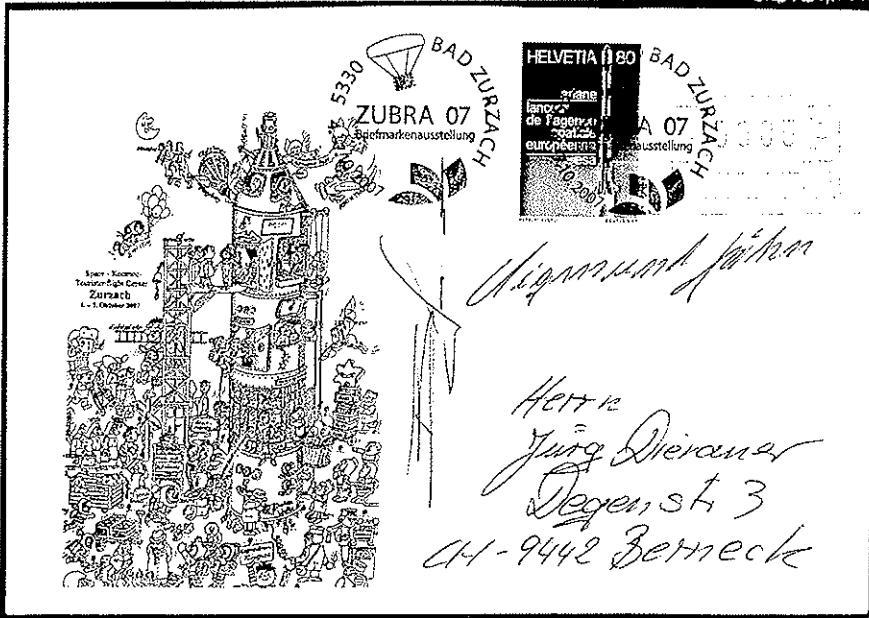 5330 BAD ZURZACH
ZUBRA 07
Briefmarkenausstellung
HELVETIA 80
ariane
lanceur
de l'agence
spatiale
européenne
BAD ZURZACH
A 07
nausstellung
.10.2007
Zurzach
Sigmund Jähn
Herrn
Jürg Dierauer
Degenstr. 3
CH-9442 Berneck